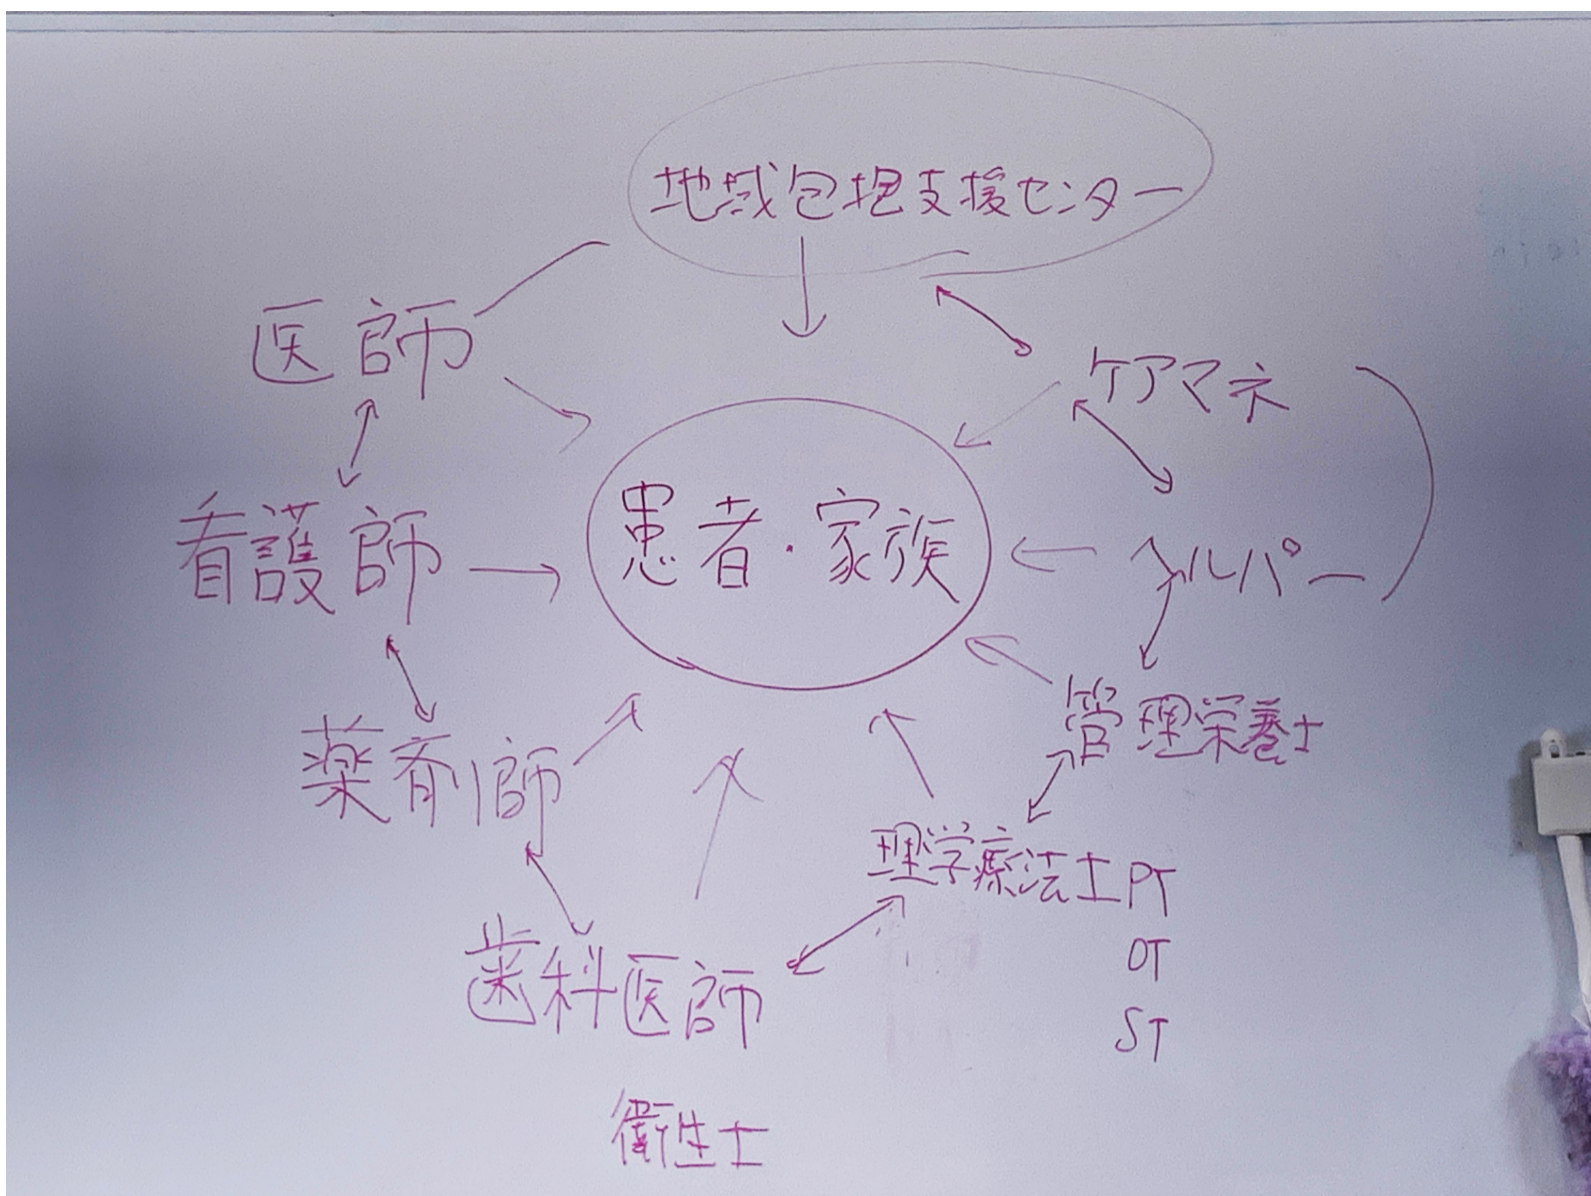 地域包括支援センター
医師
ケアマネ
患者・家族
看護師
ヘルパー
管理栄養士
薬剤師
理学療法士PT
OT
ST
歯科医師
衛生士